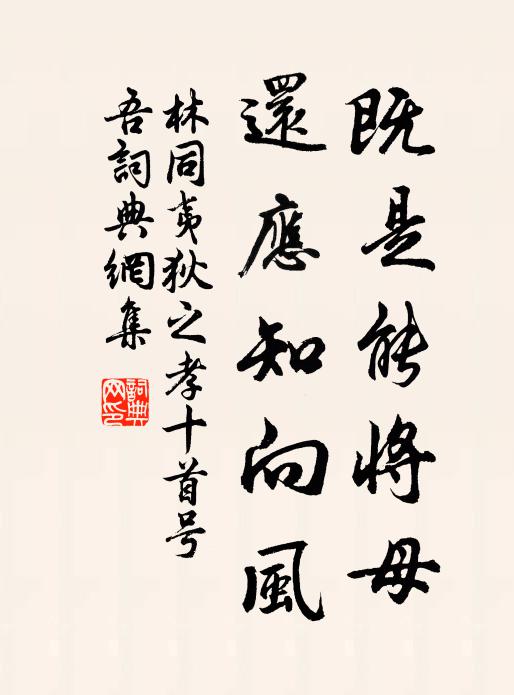 既是能將母
還應知向風
林同夷狄之孝十首号
吾詞典網集
詞典网印